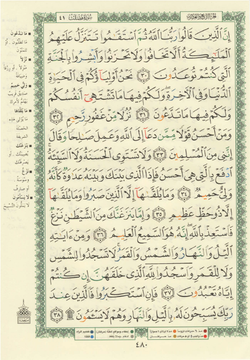 الجزء الرابع والعشرون
سورة فصلت ٤١
إِنَّ ٱلَّذِينَ قَالُوا۟ رَبُّنَا ٱللَّهُ ثُمَّ ٱسْتَقَٰمُوا۟ تَتَنَزَّلُ عَلَيْهِمُ
ٱلْمَلَٰٓئِكَةُ أَلَّا تَخَافُوا۟ وَلَا تَحْزَنُوا۟ وَأَبْشِرُوا۟ بِٱلْجَنَّةِ
ٱلَّتِى كُنتُمْ تُوعَدُونَ ٣٠ نَحْنُ أَوْلِيَآؤُكُمْ فِى ٱلْحَيَوٰةِ
ٱلدُّنْيَا وَفِى ٱلْءَاخِرَةِ وَلَكُمْ فِيهَا مَا تَشْتَهِىٓ أَنفُسُكُمْ
وَلَكُمْ فِيهَا مَا تَدَّعُونَ ٣١ نُزُلًا مِّنْ غَفُورٍ رَّحِيمٍ ٣٢
وَمَنْ أَحْسَنُ قَوْلًا مِّمَّن دَعَآ إِلَى ٱللَّهِ وَعَمِلَ صَٰلِحًا وَقَالَ
إِنَّنِى مِنَ ٱلْمُسْلِمِينَ ٣٣ وَلَا تَسْتَوِى ٱلْحَسَنَةُ وَلَا ٱلسَّيِّئَةُ
ٱدْفَعْ بِٱلَّتِى هِىَ أَحْسَنُ فَإِذَا ٱلَّذِى بَيْنَكَ وَبَيْنَهُۥ عَدَٰوَةٌ كَأَنَّهُۥ
وَلِىٌّ حَمِيمٌ ٣٤ وَمَا يُلَقَّىٰهَآ إِلَّا ٱلَّذِينَ صَبَرُوا۟ وَمَا يُلَقَّىٰهَآ
إِلَّا ذُو حَظٍّ عَظِيمٍ ٣٥ وَإِمَّا يَنزَغَنَّكَ مِنَ ٱلشَّيْطَٰنِ نَزْغٌ
فَٱسْتَعِذْ بِٱللَّهِ إِنَّهُۥ هُوَ ٱلسَّمِيعُ ٱلْعَلِيمُ ٣٦ وَمِنْ ءَايَٰتِهِ
ٱلَّيْلُ وَٱلنَّهَارُ وَٱلشَّمْسُ وَٱلْقَمَرُ لَا تَسْجُدُوا۟ لِلشَّمْسِ
وَلَا لِلْقَمَرِ وَٱسْجُدُوا۟ لِلَّهِ ٱلَّذِى خَلَقَهُنَّ إِن كُنتُمْ
إِيَّاهُ تَعْبُدُونَ ٣٧ فَإِنِ ٱسْتَكْبَرُوا۟ فَٱلَّذِينَ عِندَ
رَبِّكَ يُسَبِّحُونَ لَهُۥ بِٱلَّيْلِ وَٱلنَّهَارِ وَهُمْ لَا يَسْـَٔمُونَ ۩ ٣٨
٤٨٠